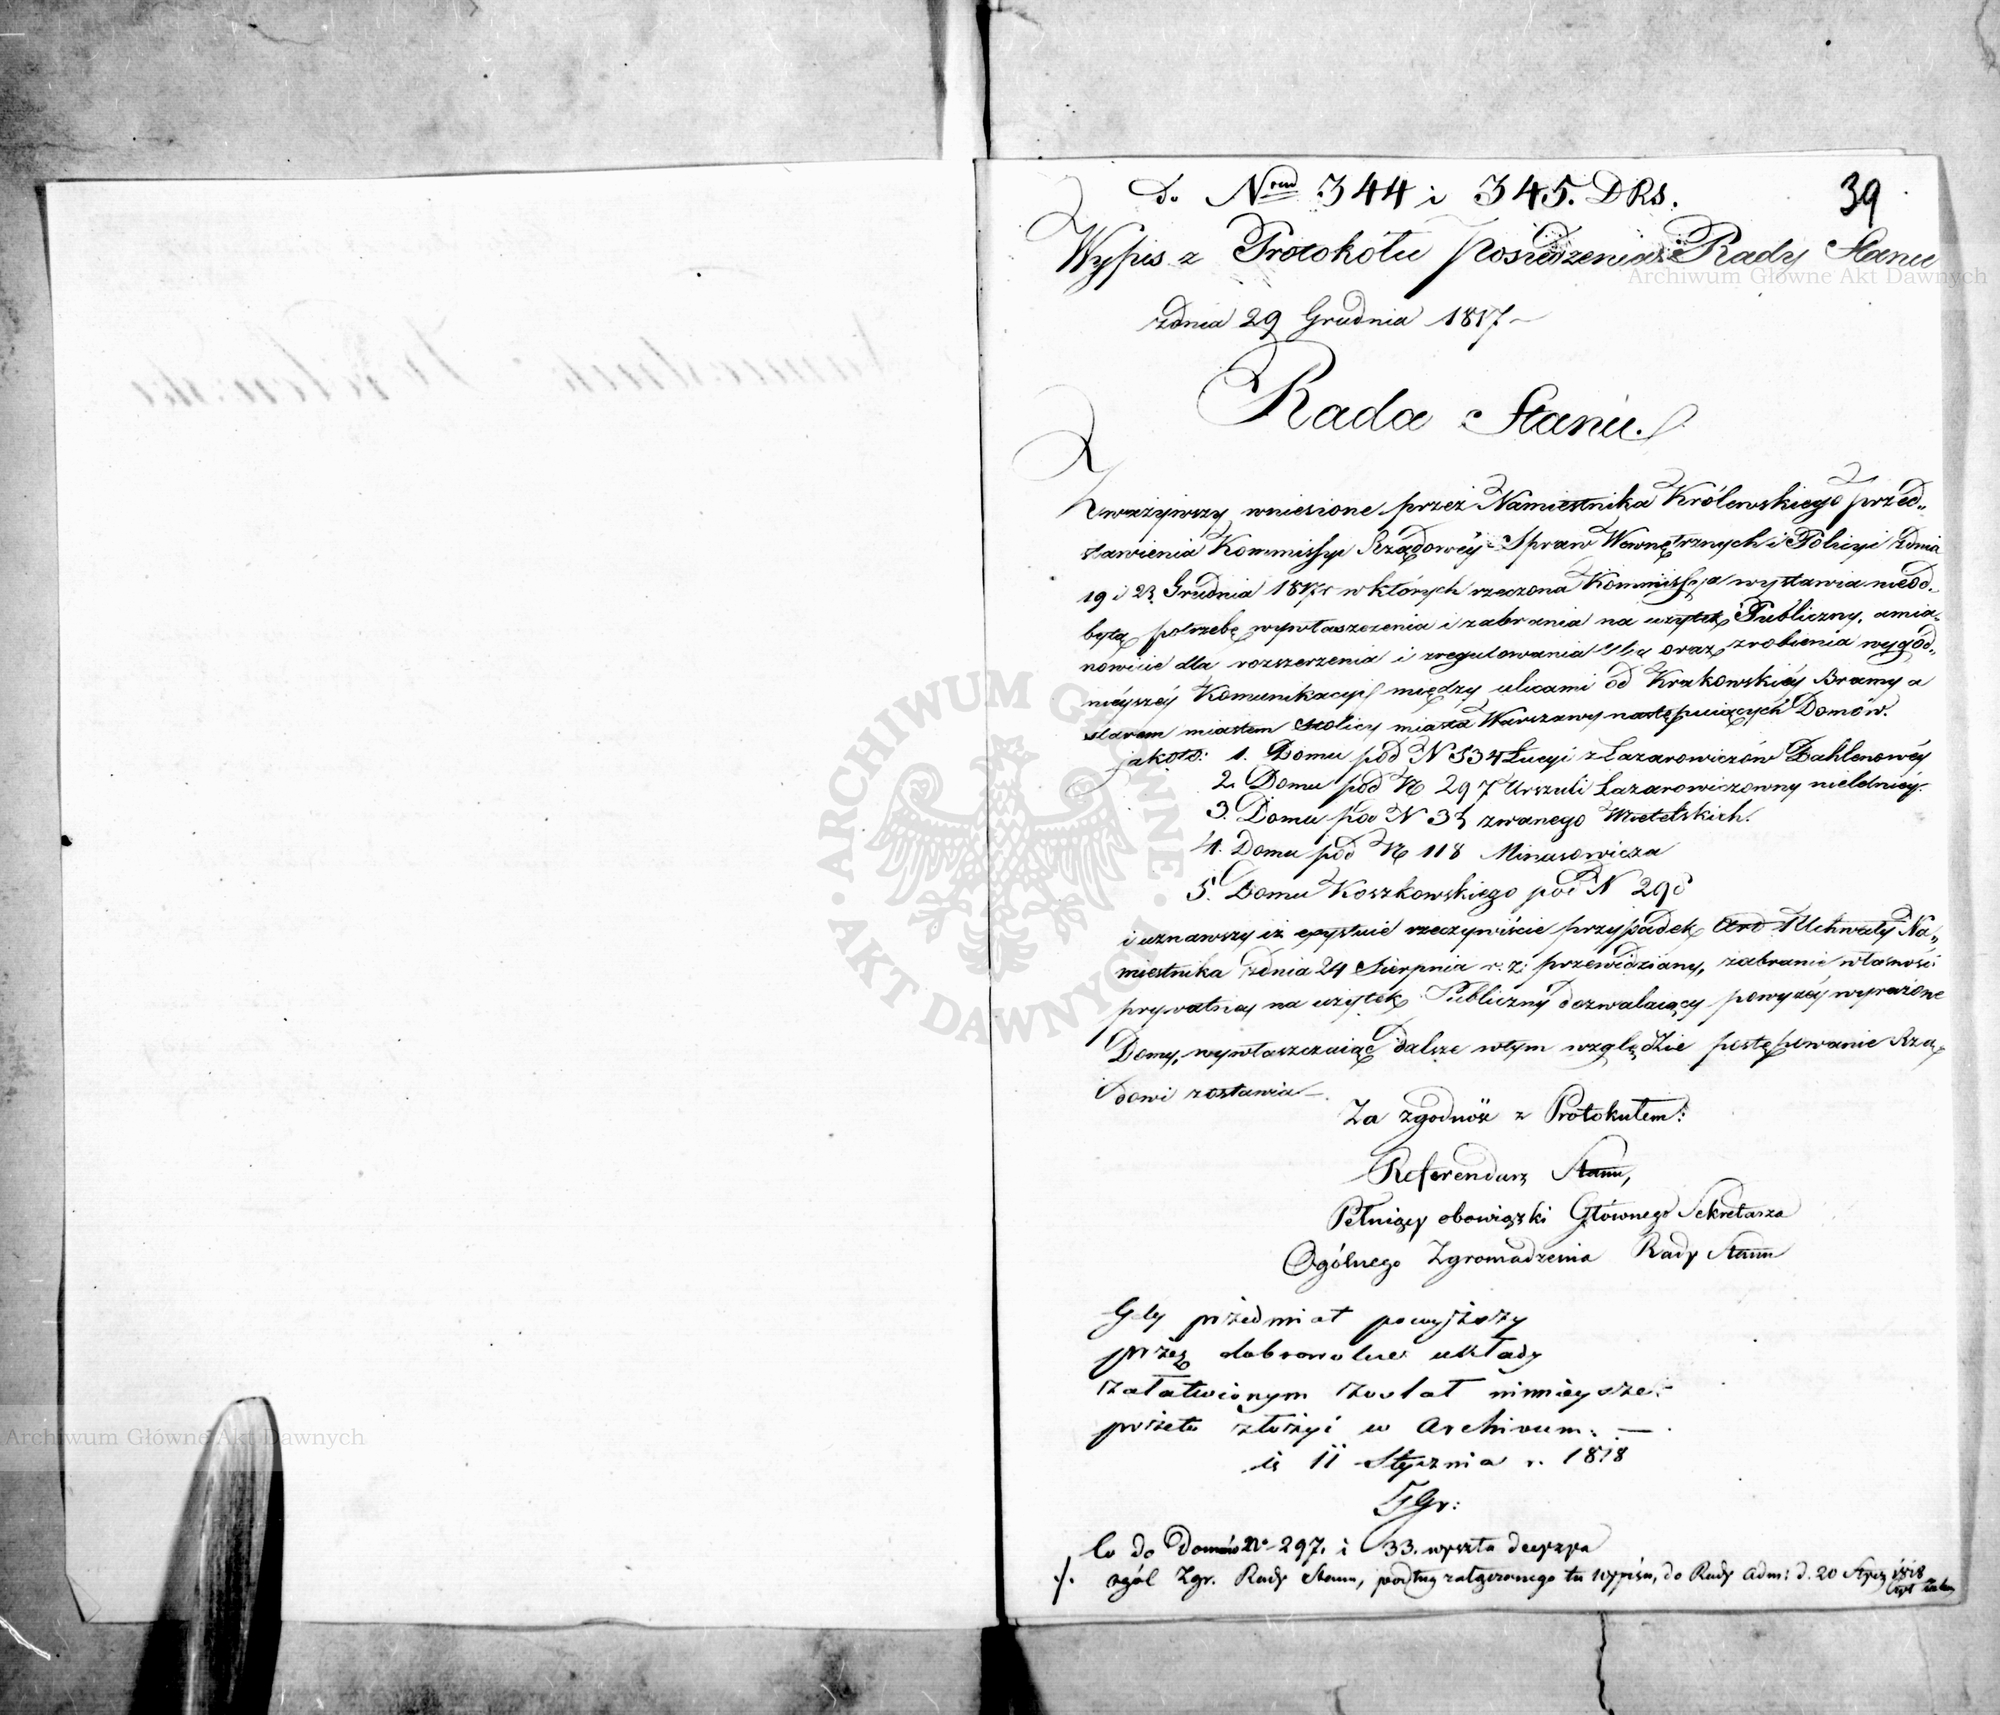 do Nrow 344 i 345. DRS.
39
Wypis z Protokółu posiedzenia Rady Stanu
zdnia 29 Grudnia 1817
Rada Stanu.
Zważywszy wniesione przez Namiestnika Królewskiego przed-
stawienia Kommissyi Rządowéy Spraw Wewnętrznych i Policyi zdnia
19 i 23 Grudnia 1817 r w których rzeczona Kommissya wystawia nieod-
bytą potrzebę wywłaszczenia i zabrania na użytek Publiczny, a mia-
nowicie dla rozszerzenia i zregulowania oraz zrobienia wygód-
niéyszéy Komunikacyi między ulicami od Krakowskiéy Bramy a
starem miastem Stolicy miasta Warszawy następuiących Domów.
jakoto: 1. Domu pod N 534 Łucyi z Łazarowiczów Dahlenowéy
2. Domu pod N 297 Urszuli Łazarowiczowny nieletniéy.
3. Domu pod N 33 zwanego Mietelskich.
4. Domu pod N 118 Minasowicza
5. Domu Koszkowskiego pod N 298
i uznawszy iż exystuie rzeczywiście przypadek Uchwały Na-
miestnika zdnia 24 Sierpnia r. z. przewidziany, zabranie własności
prywatney na użytek Publiczny dozwalaiący powyżéy wyrażone
Domy, wywłaszczaiąc dalsze wtym względzie postępowanie Rzą-
dowi zostawia
Za zgodność z Protokułem:
Referendarz Stanu,
Pełniący obowiązki Głównego Sekretarza
Ogólnego Zgromadzenia Rady Stanu
Gdy przedmiot powyższy
przez dobrowolne układy
załatwionym został ninieysze
przeto złożyć w Archivum.
11 Stycznia r. 1818
Co do Domów No 297. i 33. wyszła decyzya
ogól Zgr. Rady Stanu, podług załączonego tu wypisu, do Rady Adm: d. 20 Stycz 1818
Archiwum Główne Akt Dawnych
ARCHIWUM GŁÓWNE AKT DAWNYCH
Archiwum Główne Akt Dawnych